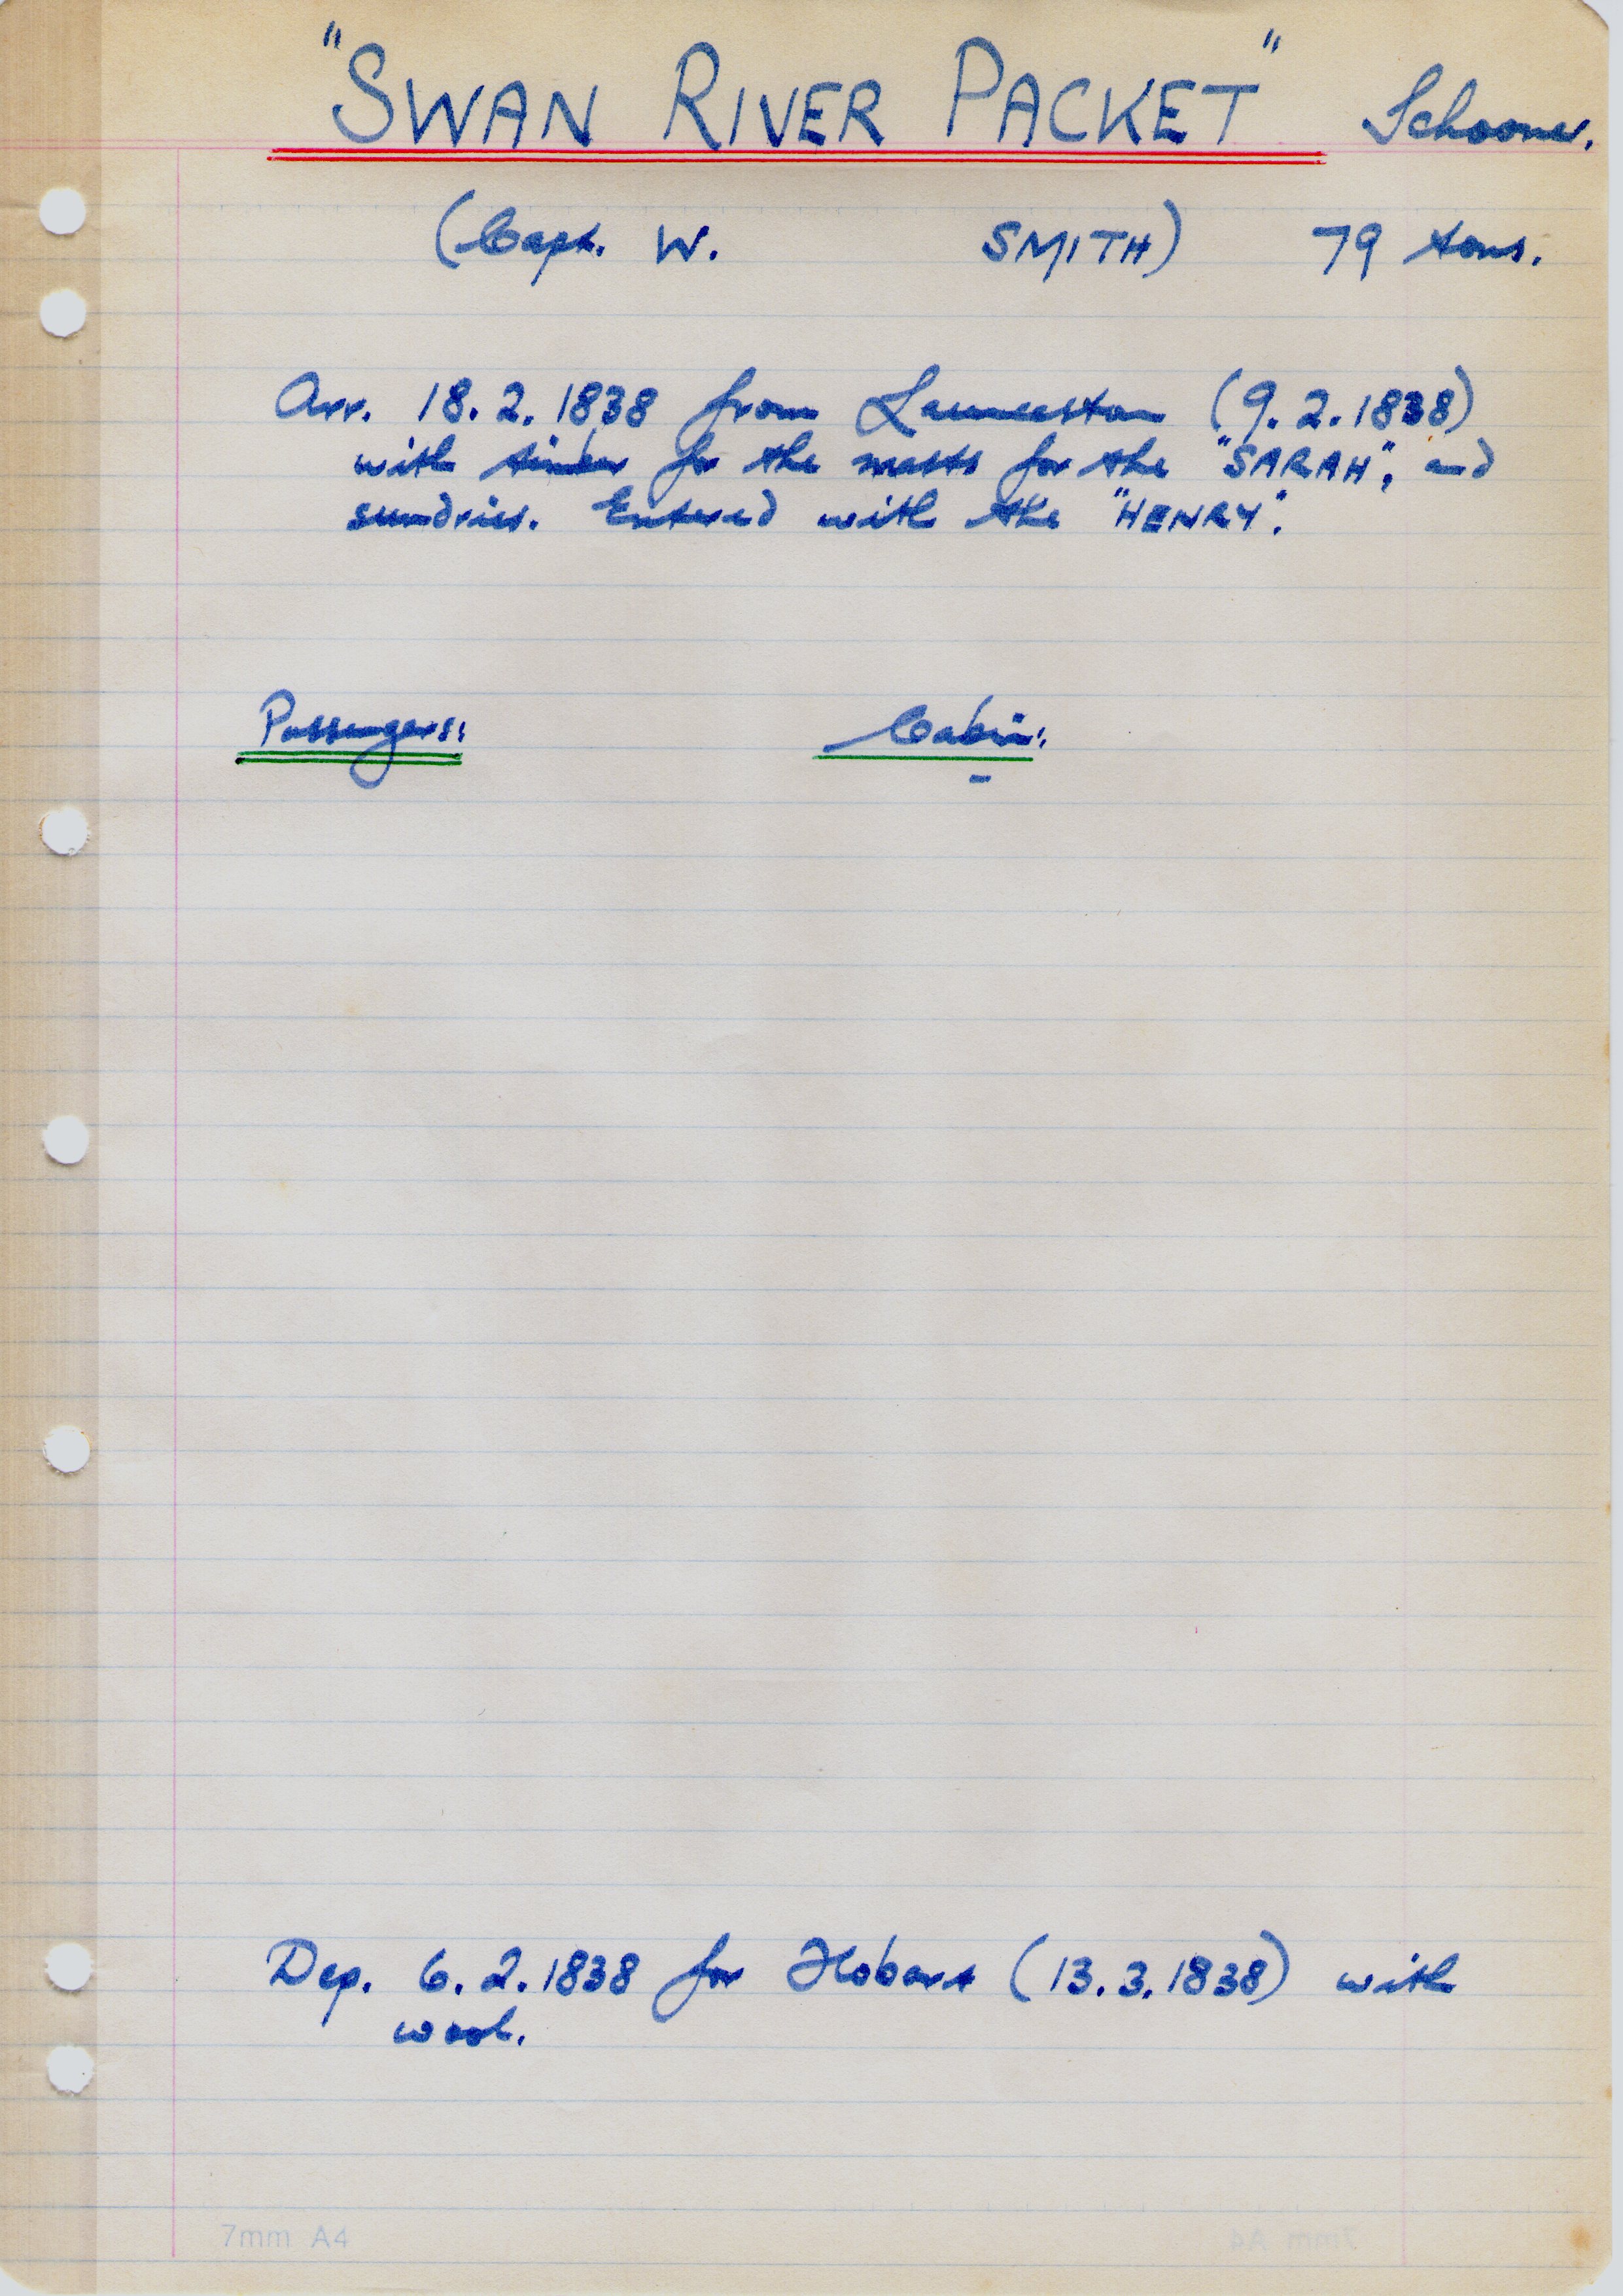 "SWAN RIVER PACKET" Schooner.
(Capt. W. SMITH) 79 tons.
Arr. 18.2.1838 from Launceston (9.2.1838)
with timber for the masts for the "SARAH", and
sundries. Entered with the "HENRY".
Passengers: Cabin:
-
Dep. 6.2.1838 for Hobart (13.3.1838) with
wool.
7mm A4